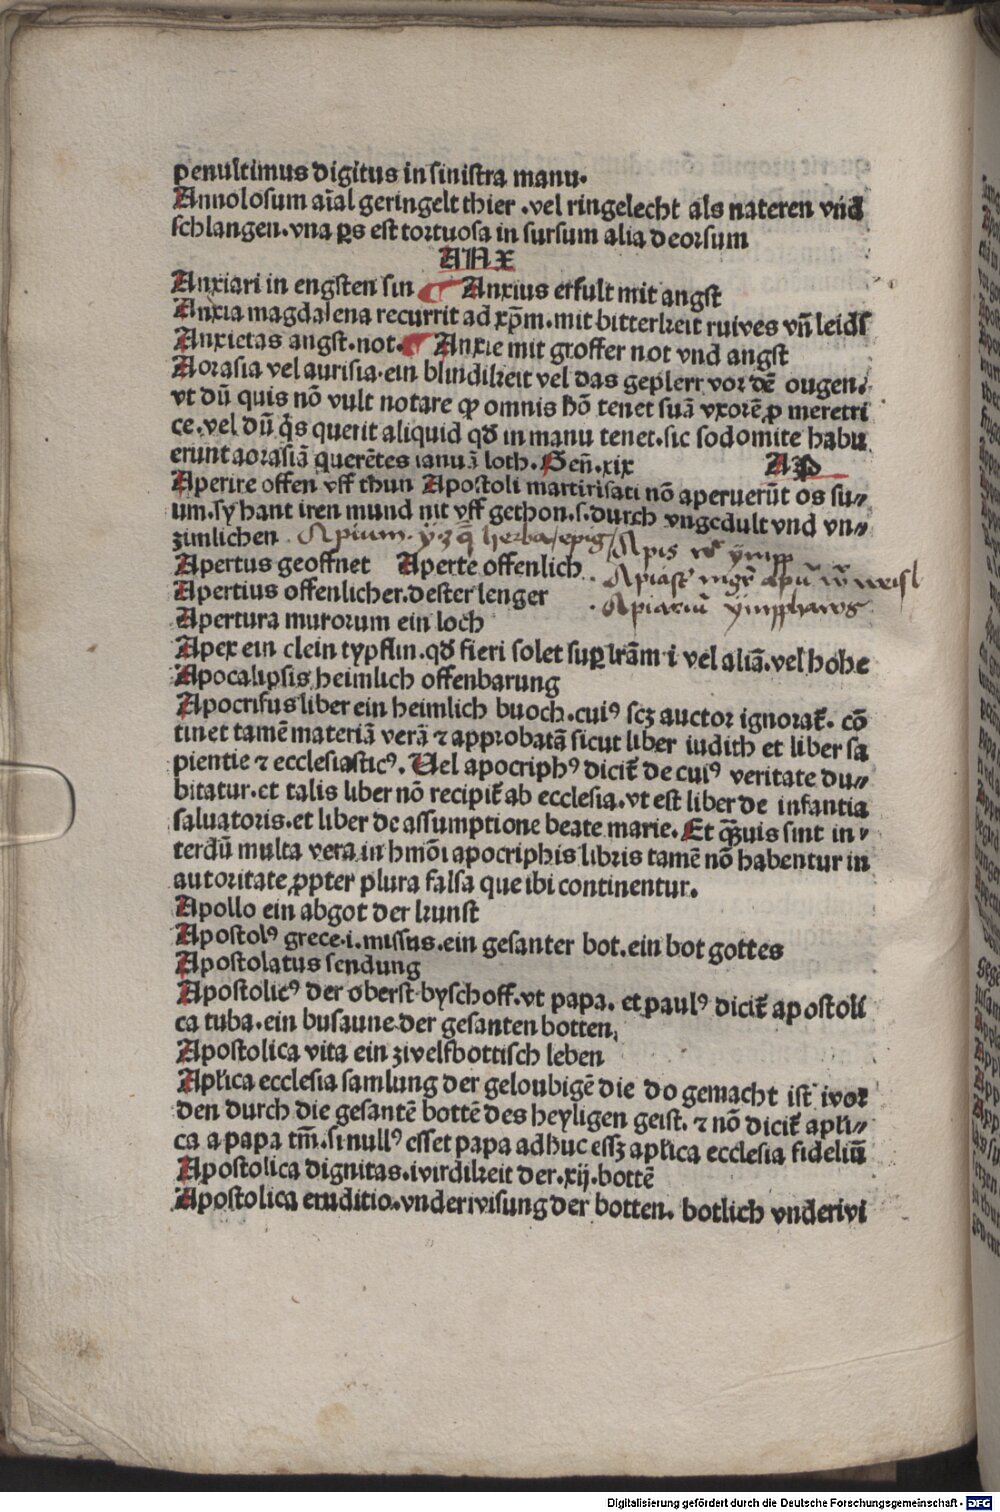 penultimus digitus in sinistra manu.
Annolosum aīal geringelt thier .vel ringelecht als nateren vnd
schlangen.vna ꝑs est tortuosa in sursum alia deorsum
ANX
Anxiari in engsten sin Anxius erfult mit angst
Anxia magdalena recurrit ad xp̄m.mit bitterkeit ruwes vn̄ leids
Anxietas angst.not. Anxie mit grosser not vnd angst
Aorasia vel aurisia.ein blindikeit vel das geplerr vor dē ougen.
vt dū quis nō vult notare ꝙ omnis hō tenet suā vxorē ꝓ meretri
ce.vel dū q̇s querit aliquid qď in manu tenet.sic sodomite habu
erunt aorasiā querētes ianuā loth.Gen̄.xix AP
Aperire offen vff thun Apostoli martirisati nō aperuerūt os su⸗
um.sy hant iren mund nit vff gethon.s.durch vngedult vnd vn⸗
zimlichen Apium. herba/epig/Apis
Apertus geoffnet Aperte offenlich
Apertius offenlicher.dester lenger
Apertura murorum ein loch
Apex ein clein typflin.qď fieri solet suꝑ lr̄am i vel aliā.vel hohe
Apocalipsis heimlich offenbarung
Apocrifus liber ein heimlich buoch.cuiꝰ scꝫ auctor ignorat̄. cō
tinet tamē materiā verā ⁊ approbatā sicut liber iudith et liber sa
pientie ⁊ ecclesiasticꝰ. Uel apocriphꝰ dicit̄ de cuiꝰ veritate du⸗
bitatur.et talis liber nō recipit̄ ab ecclesia.vt est liber de infantia
saluatoris.et liber de assumptione beate marie. Et qͣꝫuis sint in⸗
terdū multa vera in hmōi apocriphis libris tamē nō habentur in
autoritate ꝓpter plura falsa que ibi continentur.
Apollo ein abgot der kunst
Apostolꝰ grece.i.missus.ein gesanter bot.ein bot gottes
Apostolatus sendung
Apostolicꝰ der oberst byschoff.vt papa. et paulꝰ dicit̄ apostoli
ca tuba.ein busaune der gesanten botten.
Apostolica vita ein zwelfbottisch leben
Apl̄ica ecclesia samlung der geloubigē die do gemacht ist wor
den durch die gesantē bottē des heyligen geist. ⁊ nō dicit̄ apl̄i⸗
ca a papa tm̄.si nullꝰ esset papa adhuc essꝫ apl̄ica ecclesia fideliū
Apostolica dignitas.wirdikeit der.xij.bottē
Apostolica eruditio.vnderwisung der botten. botlich vnderwi
Digitalisierung gefördert durch die Deutsche Forschungsgemeinschaft - DFG